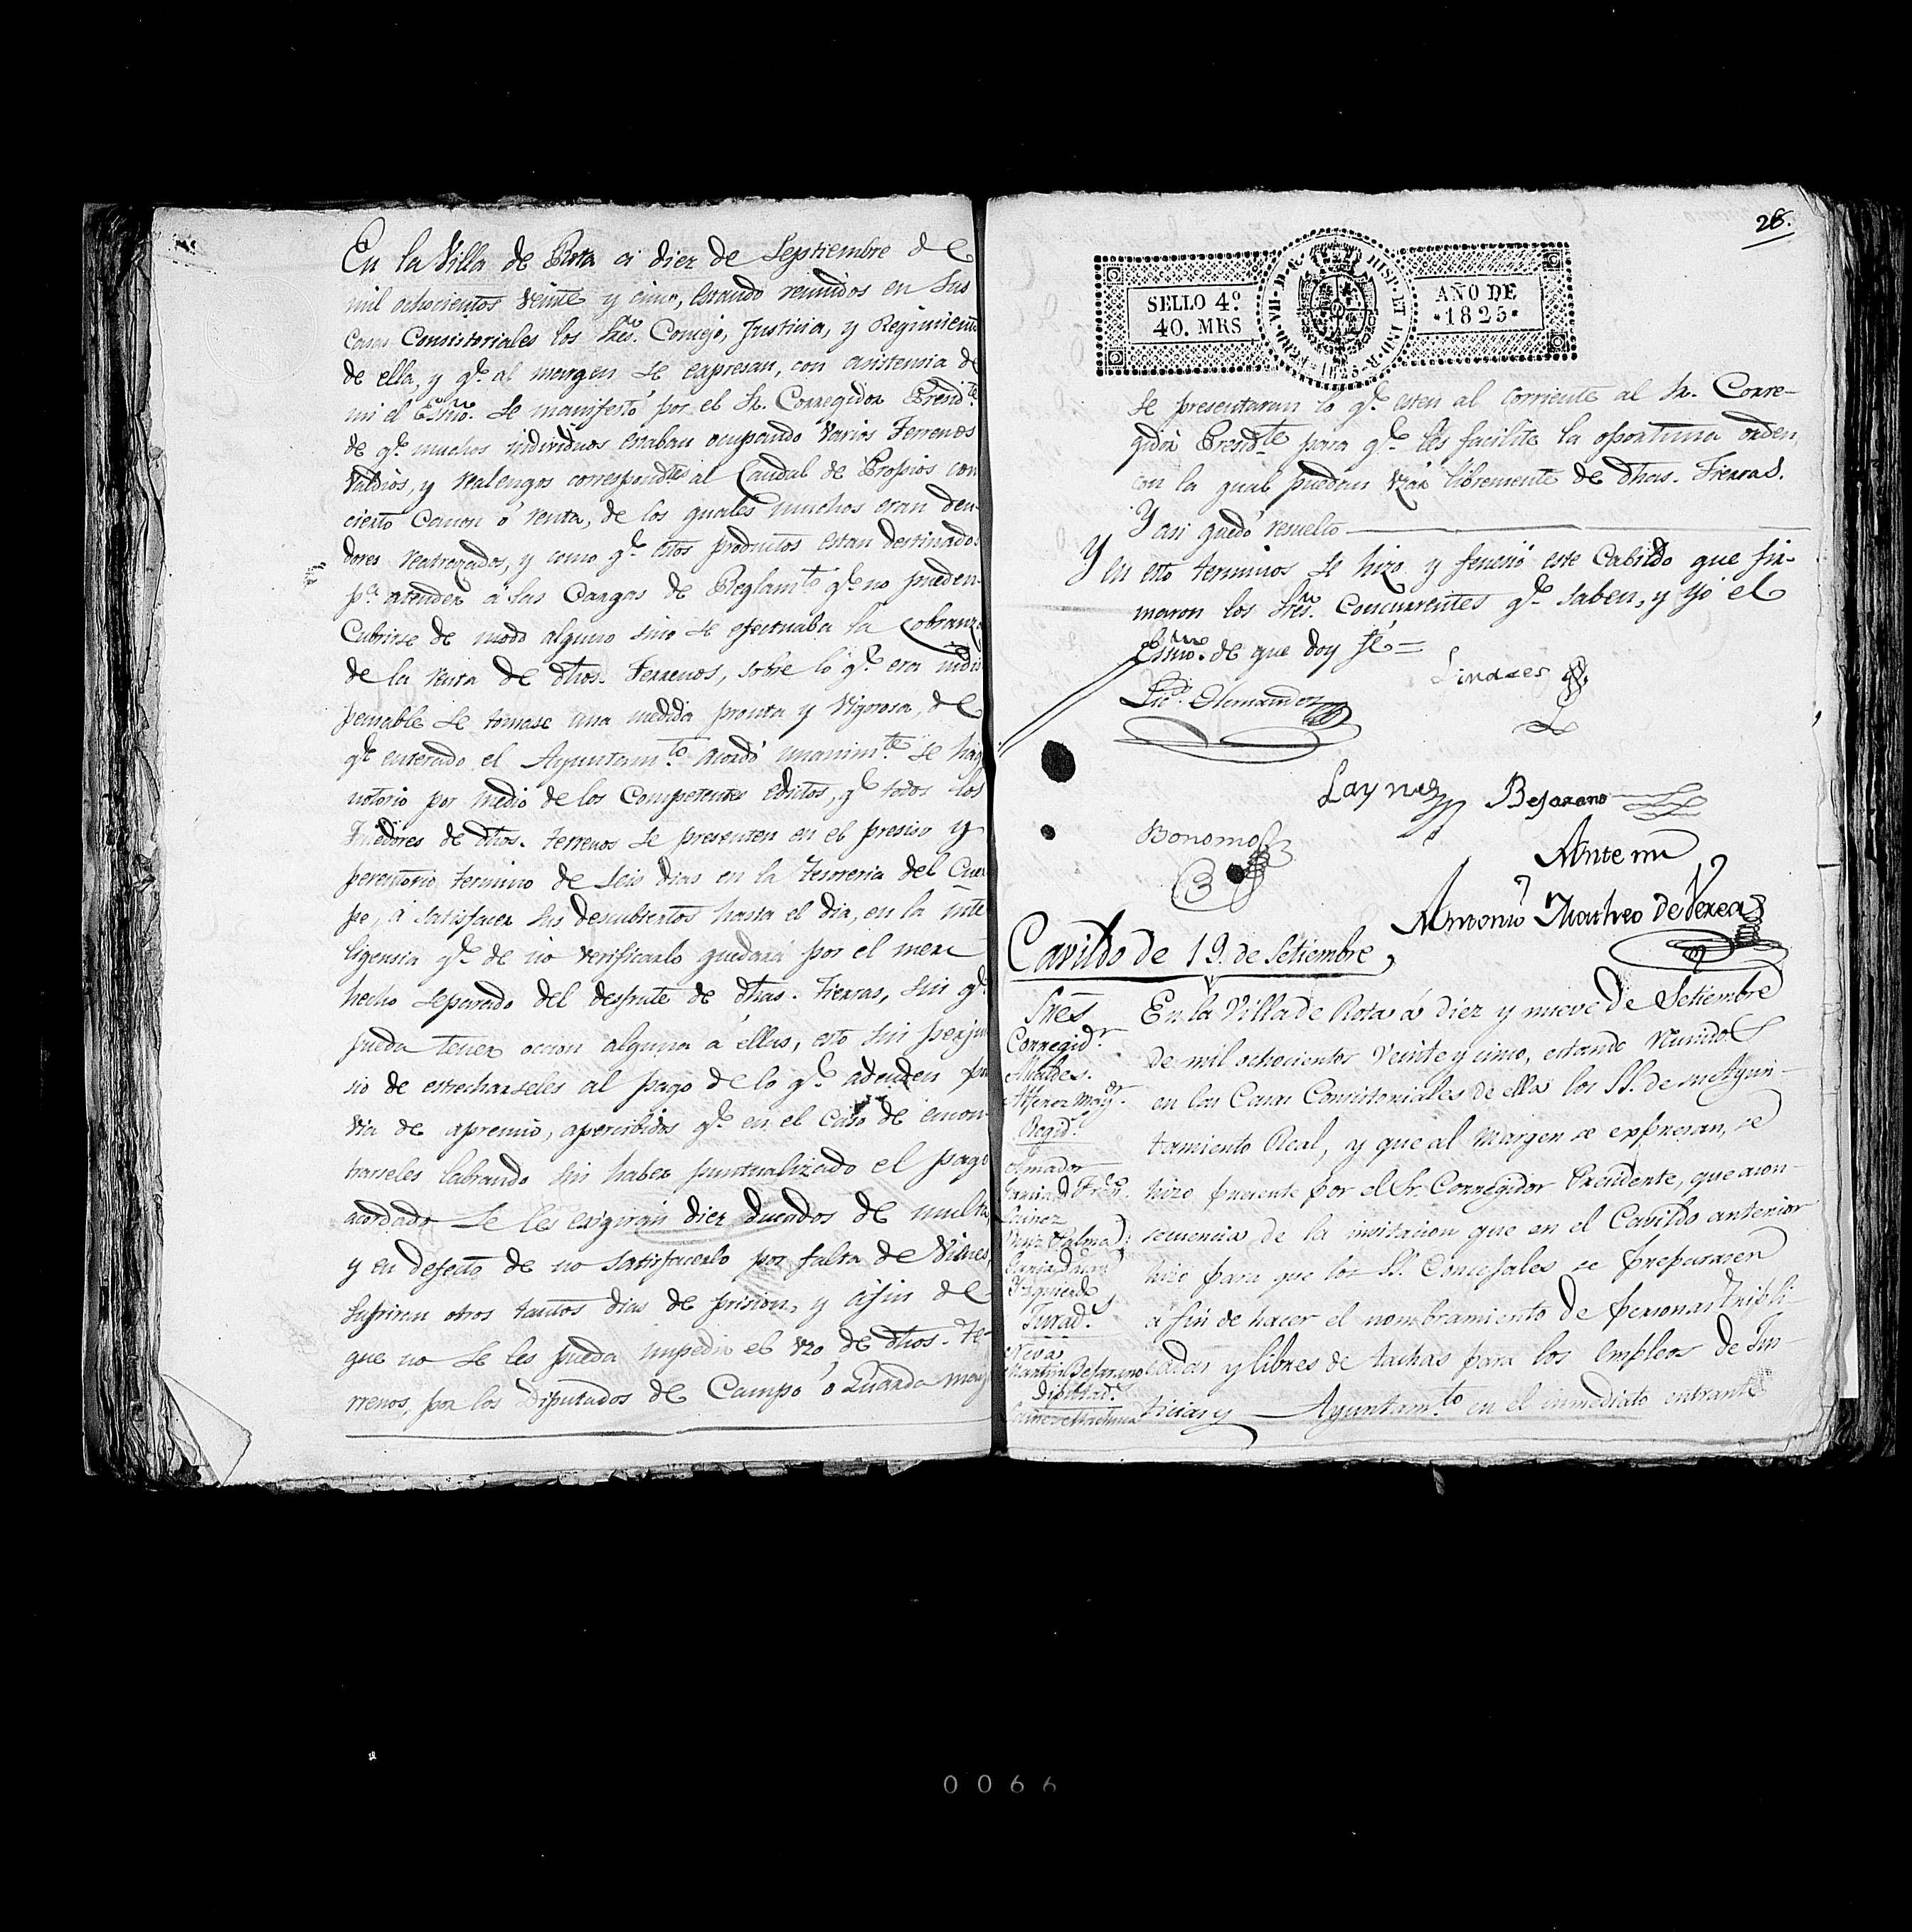 En la Villa de Rota a diez de Septiembre de
mil ochocientos veinte y cinco, estando reunidos en sus
Casas Consistoriales los Sres. Consejo, Justicia, y Regimiento
de ella, y qe. al margen se expresan, con asistencia de
mi el Esno. se manifestó por el Sr. Corregidor Presidte.
de qe. muchos individuos estaban ocupando varios Terrenos
valdios, y realengos correspondtes al Caudal de Propios con
cierto Canon ó renta, de los quales muchos eran deu-
dores reatrazados, y como qe. estos productos estan destinados
pa. atender á las Cargas de Reglamto qe. no pueden
Cubrirse de modo alguno sino se efectuaba la Cobranza
de la renta de dhos. Terrenos, sobre lo qe. era indis
pensable se tomase una medida pronta y vigorosa, de
qe. enterado el Ayuntamto. acordó unanimte. se haga
notorio por medio de los Competentes edictos, qe. todos los
Tenedores de dhos. terrenos se presenten en el preciso y
perentorio termino de seis dias en la tesoreria del Cuer
po, á satisfacer sus descubiertos hasta el dia, en la inte
ligensia qe. de no verificarlo quedará por el mero
hecho separado del desfrute de dhas. Tierras, sin qe.
pueda tener accion alguna á ellas, esto sin perjui
sio de estrecharseles al pago de lo qe. adeuden por
via de apremio, apercibidos qe. en el caso de encon
trarseles labrando sin haber puntualizado el pago
acordado se les exigiran diez ducados de multa,
y en defecto de no satisfacerlo por falta de Vienes,
sufriran otros tantos dias de prision, y á fin de
que no se les pueda impedir el uzo de dhos. Te-
rrenos, por los Diputados de Campo ó Guarda mayr
26.
SELLO 4º
40. MRS
FERDIN. VII. D. G. HISP. ET IND. R. 1825
AÑO DE
1825
se presentaran lo qe. esten al corriente al Sr. Corre-
gidor Presidte para qe. les facilite la oportuna orden,
con la qual puedan uzar libremente de dhas. Tierras.
Y asi quedó resuelto
Y en esto terminos se hizo y feneció este Cabildo que fir-
maron los Sres. Concurrentes qe. saben, y yó el
Esno. de que doy fé =
Licdo.
Laynez
Bejarano
Bonomo
Ante mi
Antonio Matheo de Perea
Cavildo de 19. de Setiembre,
Sres
Corregidr.
Alcaldes.
Alferez mayor.
Regids.
Amador
Garcia de Fco.
Lainez
Ruiz Palma
Izquierdo
Jurads.
Neva
Martin Bejarano
Diputads.
En la Villa de Rota á diez y nueve de Setiembre
de mil ochocientos veinte y cinco, estando reunidos
en las Casas Consistoriales de ella los SS. de su Ayun-
tamiento Real, y que al margen se expresan, se
hizo presente por el Sr. Corregidor Presidente, que acon-
secuencia de la invitacion que en el Cavildo anterior
hizo para que los SS. Concejales se preparacen
á fin de hacer el nombramiento de personas tripli-
cadas y libres de tachas para los empleos de Jus-
ticias y Ayuntamto en el inmediato entrante